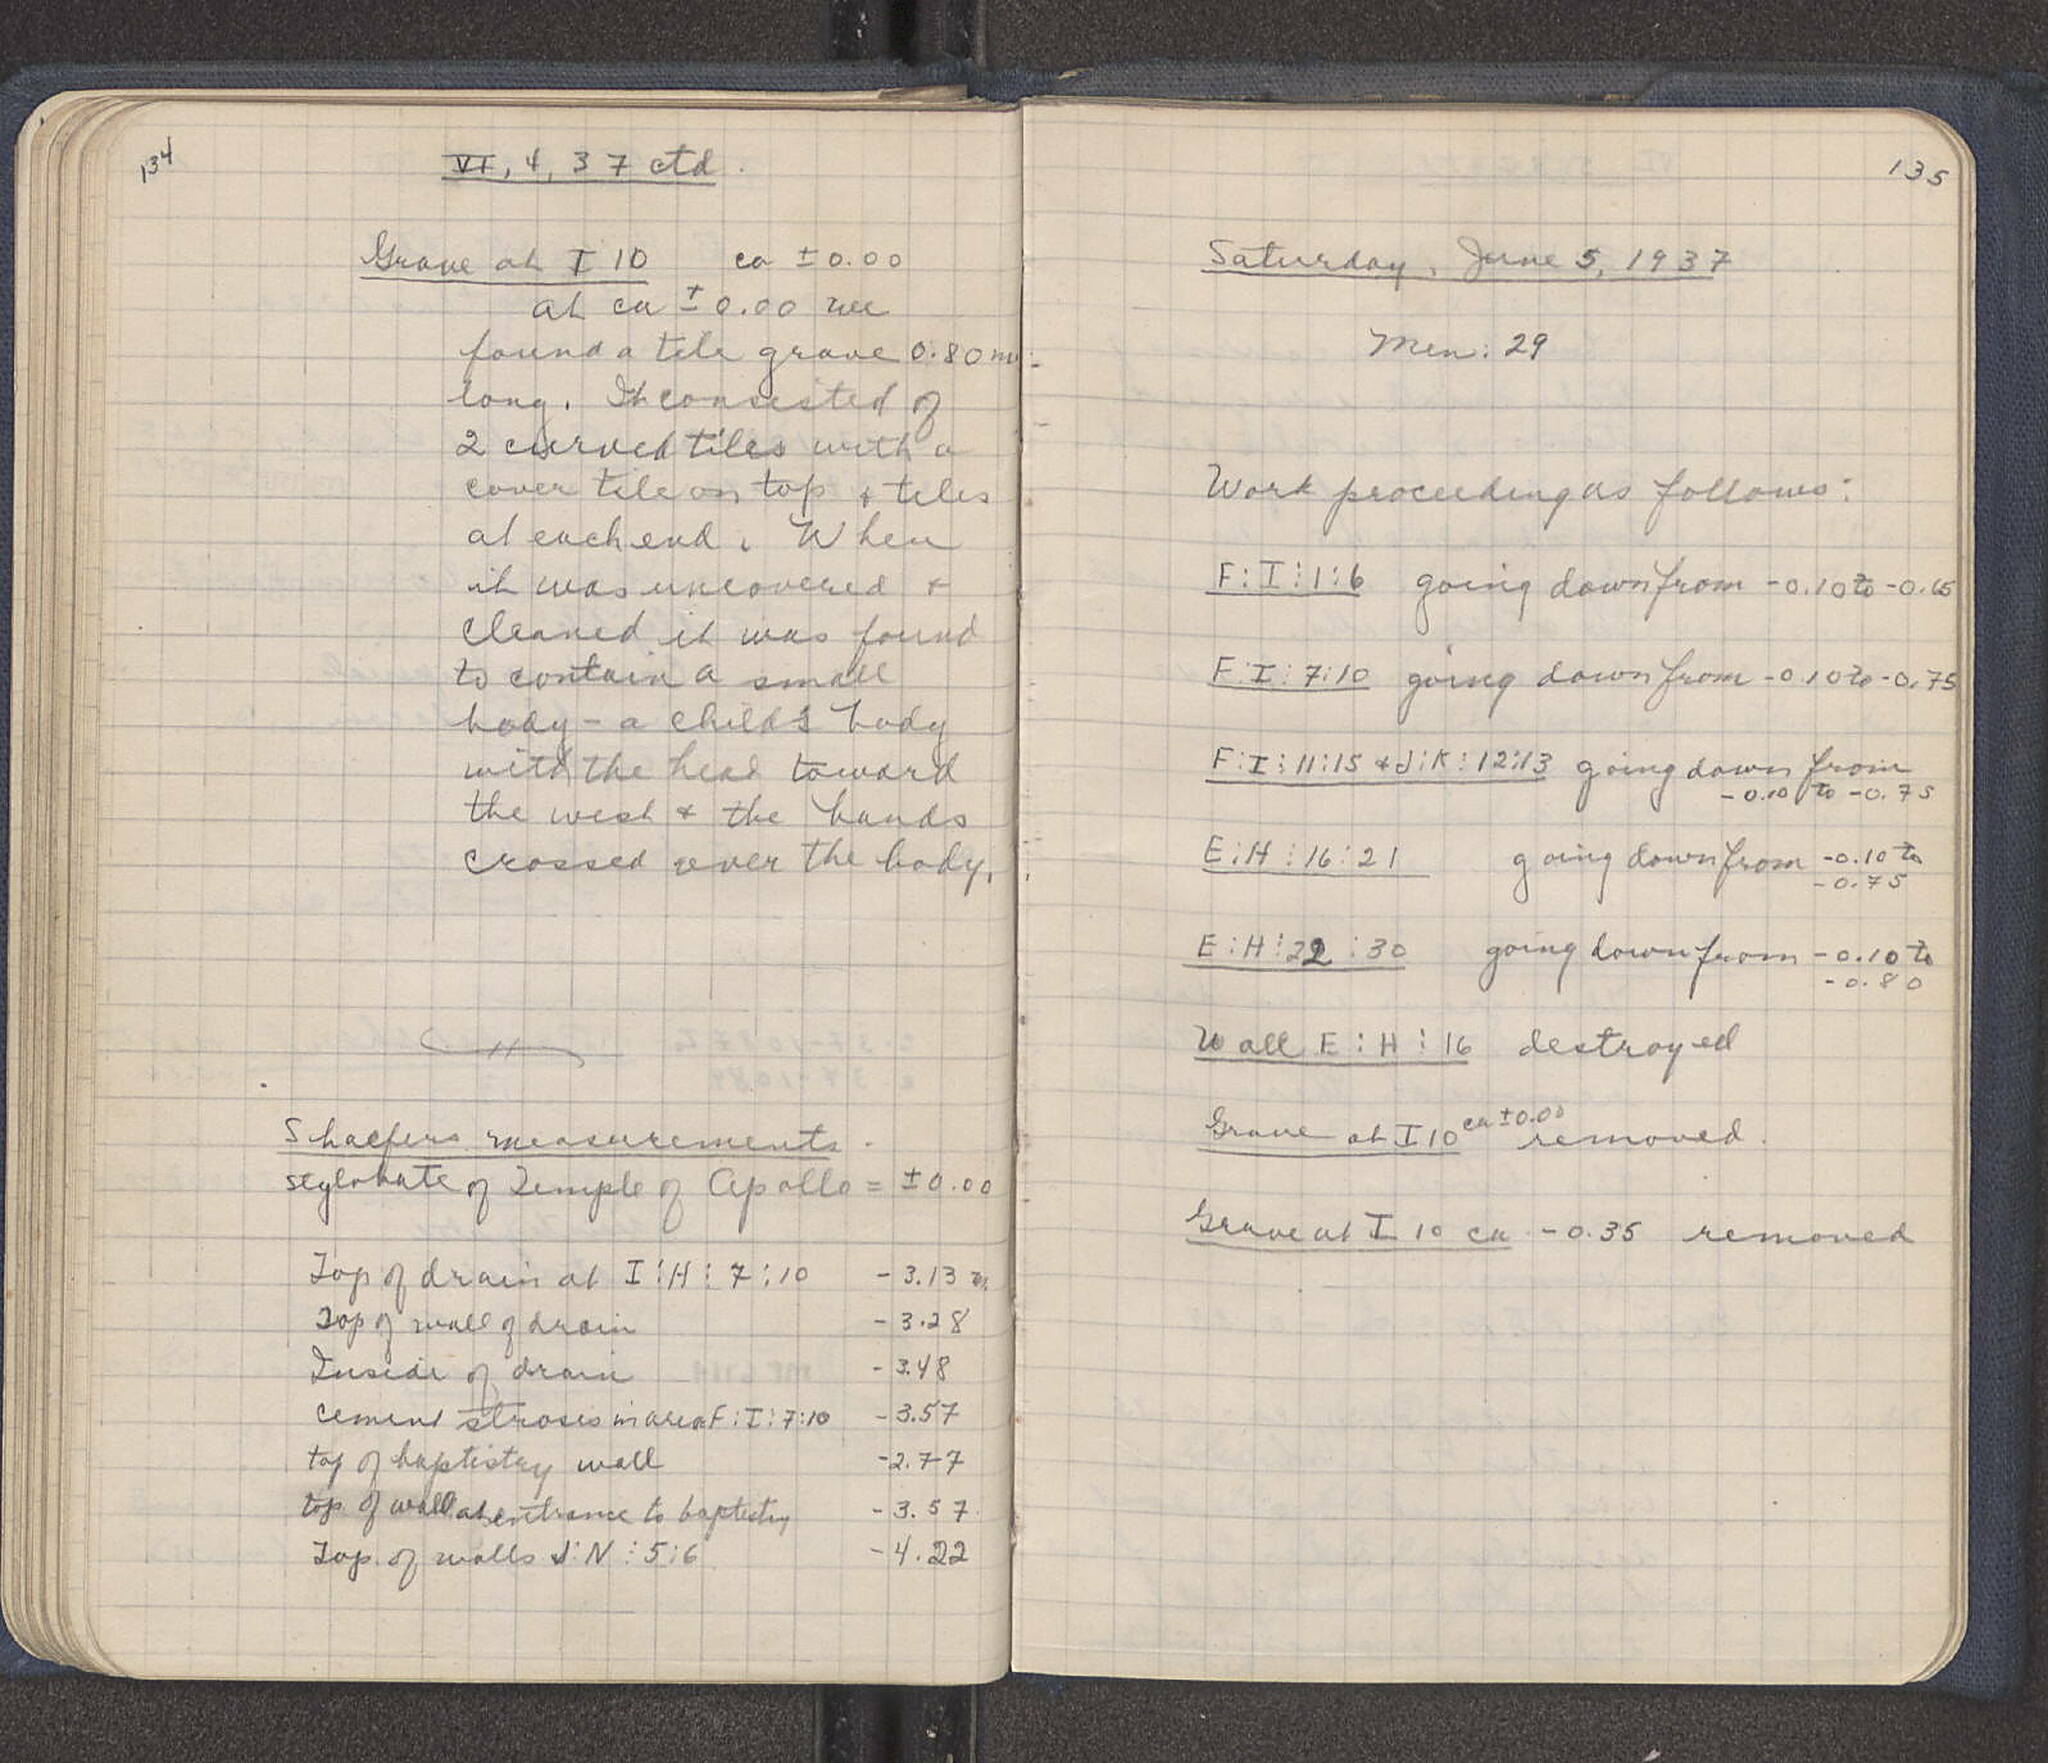 134
VI, 4, 37 ctd.
Grave at I 10 ca ±0.00
at ca ±0.00 we
found a tile grave 0.80 m
long. It consisted of
2 curved tiles with a
cover tile on top + tiles
at each end. When
it was uncovered +
cleaned it was found
to contain a small
body - a child's body
with the head toward
the west + the hands
crossed over the body.
Shaefers measurements.
stylobate of Temple of Apollo = ±0.00
Top of drain at I:H:7:10 -3.13 m.
Top of wall of drain -3.28
Inside of drain -3.48
cement stroses in area F:I:7:10 -3.57
top of baptistry wall -2.77
top of wall at entrance to baptistry -3.57
Top of walls J:N:5:6 -4.22
135
Saturday, June 5, 1937
Men: 29
Work proceeding as follows:
F:I:1:6 going down from -0.10 to -0.65
F:I:7:10 going down from -0.10 to -0.75
F:I:11:15 + J:K:12:13 going down from
-0.10 to -0.75
E:H:16:21 going down from -0.10 to
-0.75
E:H:22:30 going down from -0.10 to
-0.80
Wall E:H:16 destroyed
Grave at I 10 ca ±0.00 removed.
Grave at I 10 ca -0.35 removed